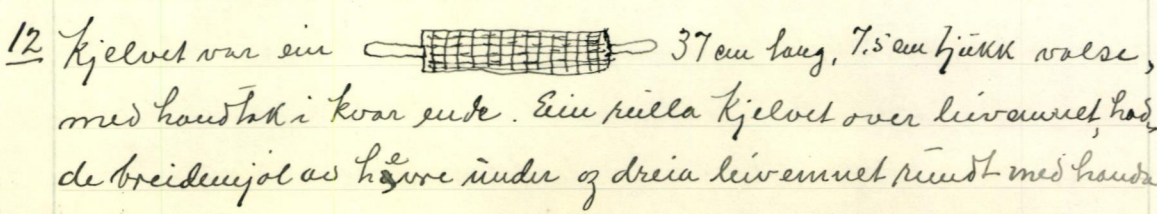 12 Kjelvet var ein 37 cm lang, 7.5 cm tjukk valse,
med handtak i kvar ende. Ein rulla Kjelvet over leivemnet, had-
de breidemjøl av hevre under og dreia leivemnet rundt med handa